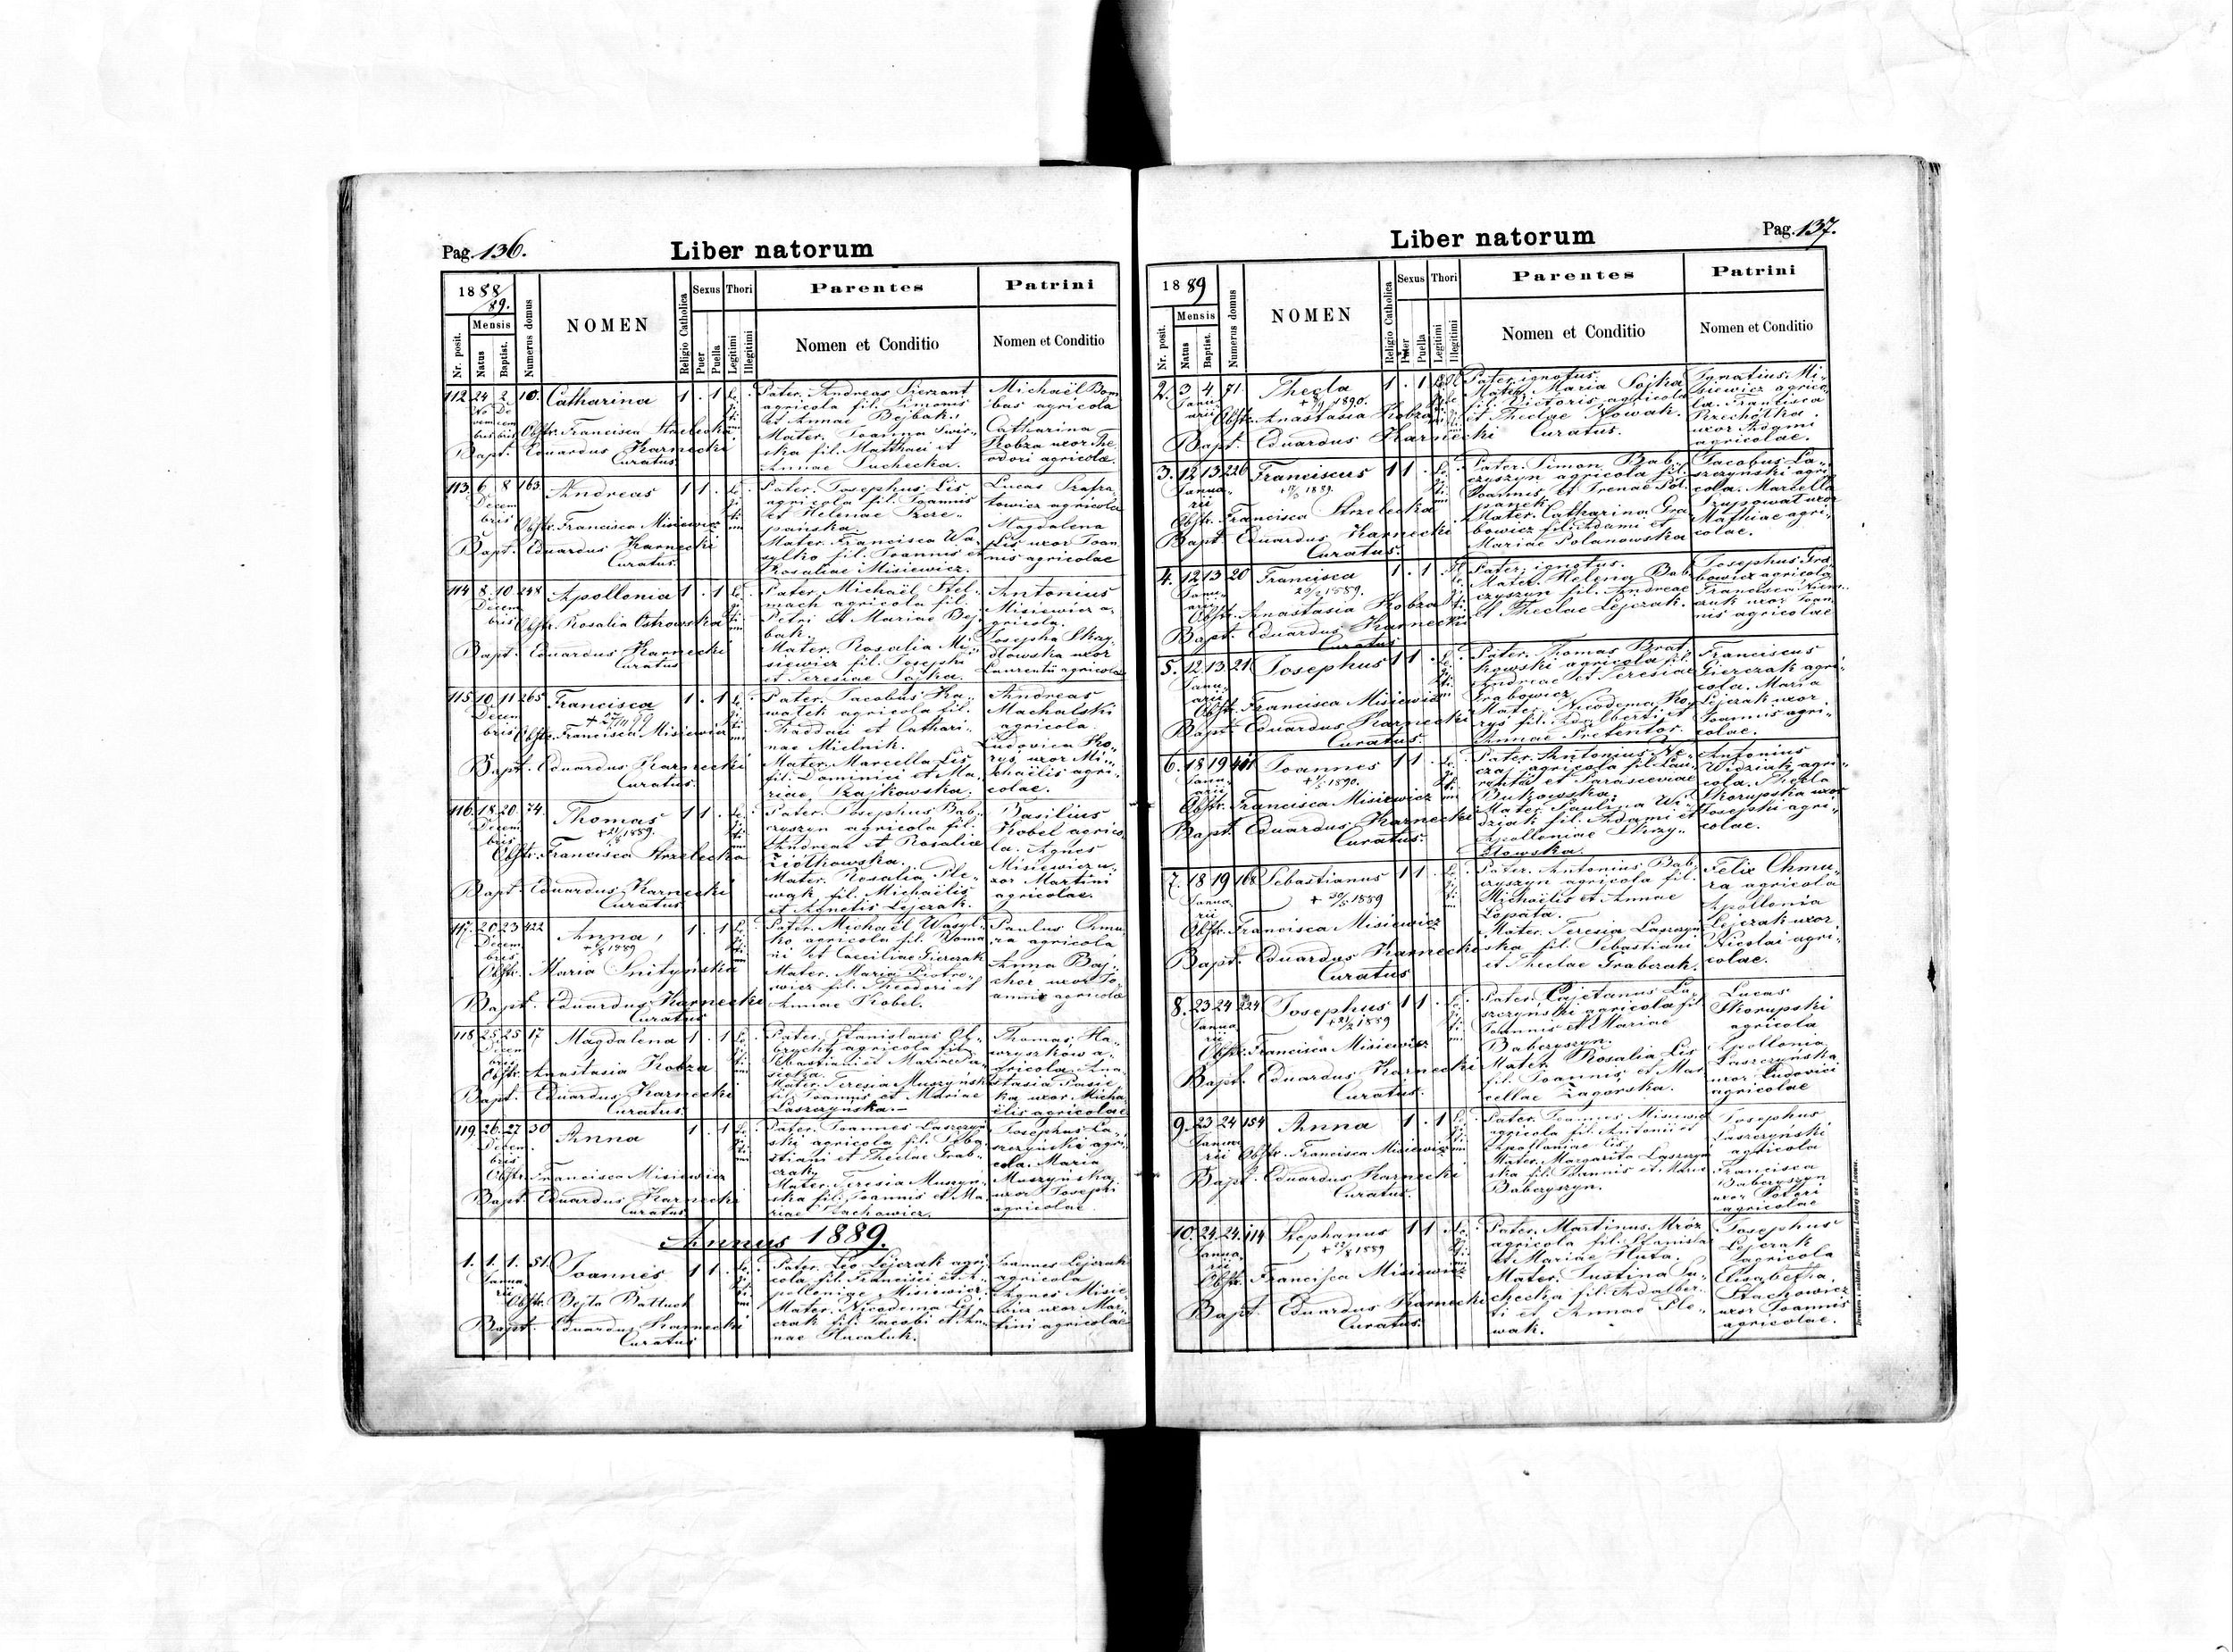 Pag. 136.
Liber natorum
1888/89.
Nr. posit.
Mensis
Natus
Baptist.
Numerus domus
NOMEN
Religio Catholica
Sexus
Puer
Puella
Thori
Legitimi
Illegitimi
Parentes
Nomen et Conditio
Patrini
Nomen et Conditio
112. 24 2 10. Catharina 1 . 1
Obstr. Francisca Strzelecka
Bapt. Eduardus Karnecki
Curatus
Pater. Andreas Sierzant
agricola fil. Simonis
et Annae Bejbak.
Mater. Joanna Swir-
ska fil. Matthaei et
Annae Suchecka.
Michaël Bom
bas agricola
Catharina
Kobza uxor The
odori agricolae.
113. 6 8 163 Andreas 1 1 .
Decem
bris
Obstr. Francisca Misiewicz
Bapt. Eduardus Karnecki
Curatus
Pater. Josephus Lis
agricola fil. Joannis
et Helenae Szcze-
pańska.
Mater. Francisca Wa
sylko fil. Joannis et
Rosaliae Misiewicz.
Lucas Szafra-
towicz agricola
Magdalena
Lis uxor Joan
nis agricolae
114 8. 10 248 Apollonia 1 . 1
Decem
bris
Obstr. Rosalia Ostrowska
Bapt. Eduardus Karnecki
Curatus
Pater Michaël Stel-
mach agricola fil.
Petri et Mariae Bej
bak.
Mater. Rosalia Mi-
siewicz fil. Josephi
et Teresiae Sojka.
Antonius
Misiewicz a-
gricola.
Josepha Skrzy-
dłowska uxor
Laurentii agricolae
115 10 11 265 Francisca 1 . 1
Decem
bris
Obstr. Francisca Misiewicz
Bapt. Eduardus Karnecki
Curatus
Pater. Jacobus Ka-
watek agricola fil.
Thaddaei et Cathari-
nae Mielnik.
Mater. Marcella Lis
fil. Dominici et Ma-
riae Szajkowska.
Andreas
Machalski
agricola
Ludovica Ko-
rys uxor Mi-
chaëlis agri-
colae.
116. 18 20 74. Thomas 1 1 .
Decem
bris
Obstr. Francisca Strzelecka
Bapt. Eduardus Karnecki
Curatus
Pater. Josephus Bab-
czyszyn agricola fil.
Andreae et Rosaliae
Ziółkowska.
Mater. Rosalia Ple-
wak fil. Michaëlis
et Agnetis Lejczak.
Basilius
Kobel agrico-
la. Agnes
Misiewicz u-
xor Martini
agricolae.
117. 20 23 422 Anna 1 . 1
Decem
bris
Obstr. Maria Snityńska
Bapt. Eduardus Karnecki
Curatus
Pater. Michaël Wasyl-
ko agricola fil. Roma
ni et Caeciliae Gierczak
Mater. Maria Piotro-
wicz fil. Theodori et
Anniae Kobel.
Paulus Chmu-
ra agricola
Anna Baj-
cher uxor Jo-
annis agricolae
118 25 25 17 Magdalena 1 . 1
Decem
bris
Obstr. Anastasia Kobza
Bapt. Eduardus Karnecki
Curatus
Mater. Teresia Muszyńsk
fil. Joannis et Mariae
Laszczyńska.
Thomas Ha-
wryszkow a-
gricola. Ana-
stasia Pasie
ka uxor Micha-
ëlis agricolae
119. 26. 27 30 Anna 1 . 1
Decem
bris
Obstr. Francisca Misiewicz
Bapt. Eduardus Karnecki
Curatus
Pater. Joannes Laszczyń
ski agricola fil. Seba-
stiani et Theclae Grab-
czak.
Mater. Teresia Muszyn-
ska fil. Joannis et Ma-
riae Stachowicz.
Josephus La-
szczyński agri-
cola. Maria
Muszyńska
uxor Josephi
agricolae.
Annus 1889.
1. 1. 1. 51. Joannes 1 1 .
Janua
rii
Obstr. Bejta Battuch
Bapt. Eduardus Karnecki
Curatus
Pater. Leo Lejczak agri
cola fil. Francisci et A-
polloniae Misiewicz.
Mater. Nicodema Lej
czak fil. Jacobi et An-
nae Hucaluk.
Joannes Lejczak
agricola
Agnes Misie-
wicz uxor Mar-
tini agricolae
Pag. 137.
Liber natorum
1889
Nr. posit.
Mensis
Natus
Baptist.
Numerus domus
NOMEN
Religio Catholica
Sexus
Puer
Puella
Thori
Legitimi
Illegitimi
Parentes
Nomen et Conditio
Patrini
Nomen et Conditio
2. 3 4 71. Thecla 1 . 1
Janu
arii
Obstr. Anastasia Kobza
Bapt. Eduardus Karnecki Curatus.
Pater ignotus.
Mater. Maria Sojka
fil. Victoris agricola
et Theclae Nowak.
Ignatius Mi-
siewicz agrico-
la. Francisca
Rzechótka
uxor Adami
agricolae.
3. 12 13 226 Franciscus 1 1 .
Janua-
rii
Obstr. Francisca Strzelecka
Bapt. Eduardus Karnecki
Curatus.
Pater. Simon Bab-
czyszyn agricola fil.
Joannis et Irenae Szt.
panek.
Mater. Catharina Gra
bowicz fil. Adami et
Mariae Polanowska
Jacobus La-
szczynski agri
cola. Marcella
Szypowat uxor
Mathiae agri-
colae.
4. 12 13 20 Francisca 1 . 1
20/2 1889.
Obstr. Anastasia Kobza
Bapt. Eduardus Karnecki
Curatus
Pater, ignotus.
Mater. Helena Bab
czyszyn fil. Andreae
et Theclae Lejczak.
Josephus Gra
bowicz agricola
5. 12. 13 21 Josephus 1 1 .
Janu-
arii
Obstr. Francisca Misiewicz
Bapt. Eduardus Karnecki
Curatus.
Pater. Thomas Brat-
kowski agricola fil.
Andreae et Teresiae
Grabowicz.
Mater. Nicodema Ko-
rys fil. Adalberti et
Annae Pretentor.
Franciscus
Gierczak agri-
cola. Maria
Lejczak uxor
Joannis agri-
colae.
6. 18 19 401 Joannes 1 1 .
Janu-
arii
Obstr. Francisca Misiewicz
Bapt. Eduardus Karnecki
Curatus.
Pater. Antonius Ne-
cza agricola fil. Lau-
rentii et Parasceviae
Bukowska.
Mater. Paulina Wi-
dziak fil. Adami et
Apolloniae Skrzy-
dłowska.
Antonius
Widziak agri-
cola. Thecla
Skorupska uxor
Josephi agri-
colae.
7. 18 19 168 Sebastianus 1 1 .
Janua
rii
+ 30/5 1889
Obstr. Francisca Misiewicz
Bapt. Eduardus Karnecki
Curatus
Pater. Antonius Bab-
czyszyn agricola fil.
Michaëlis et Annae
Łopata.
Mater. Teresia Laszczyń
ska fil. Sebastiani
et Theclae Grabczak.
Felix Chmu-
ra agricola
Apollonia
Lejczak uxor
Nicolai agri-
colae.
8. 23 24 224 Josephus 1 1 .
Janua
rii
+ 21/2 1889
Obstr. Francisca Misiewicz
Bapt. Eduardus Karnecki
Curatus.
Pater. Cajetanus La-
szczyński agricola fil
Joannis et Mariae
Babczyszyn.
Mater Rosalia Lis
fil. Joannis et Mar
cellae Zagórska.
Lucas
Skorupski
agricola
Apollonia
Laszczyńska
uxor Ludovici
agricolae
9. 23 24 154 Anna 1 . 1
Janua
rii
Obstr. Francisca Misiewicz
Bapt. Eduardus Karnecki
Curatus.
Pater. Joannes Misiewicz
agricola fil. Antonii et
Apolloniae Lis.
Mater. Margarita Laszczyn
ska fil. Joannis et Mariae
Babczyszyn.
Josephus
Laszczyński
agricola
Francisca
Babczyszyn
uxor Petri
agricolae
10. 24. 24. 114 Stephanus 1 1 .
Janua
rii
Obstr. Francisca Misiewicz
Bapt. Eduardus Karnecki
Curatus.
Pater. Martinus Mróz
agricola fil. Stanislai
et Mariae Huta.
Mater. Justina Su-
checka fil. Adalber-
ti et Annae Ple-
wak.
Josephus
Lejczak
agricola
Elisabetha
Stachowicz
uxor Joannis
agricolae.